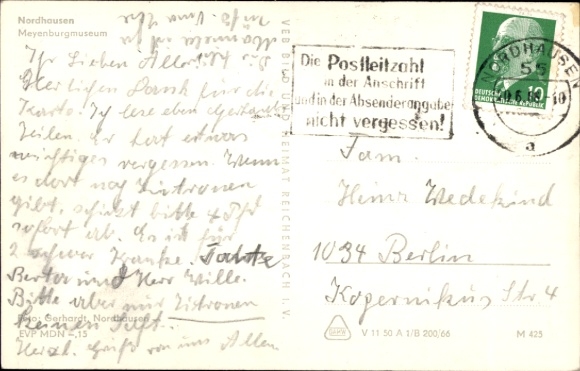 Nordhausen
Meyenburgmuseum
Ihr Lieben Alle!
Herlichen Dank für die
Karte. Ich lese eben
Zeilen. Er hat etwas
wichtiges vergessen. Wenn
es dort noch Zitronen
gibt, schickt bitte 4 Pfd
sofort ab. Es ist für
2 schwer Kranke. Tante
Berta und Herr Wille.
Bitte aber nur Zitronen
keinen Saft.
Foto: Gerhardt, Nordhausen
EVP MDN -,15
Herzl. Grüße von uns Allen.
VEB BILD UND HEIMAT REICHENBACH I. V.
Die Postleitzahl
in der Anschrift
und in der Absenderangabe
nicht vergessen!
NORDHAUSEN
55
a
10
DEUTSCHE
DEMOKRATISCHE REPUBLIK
Fam.
Heinz Wedekind
1034 Berlin
Kopernikus Str. 4
V 11 50 A 1/B 200/66
M 425